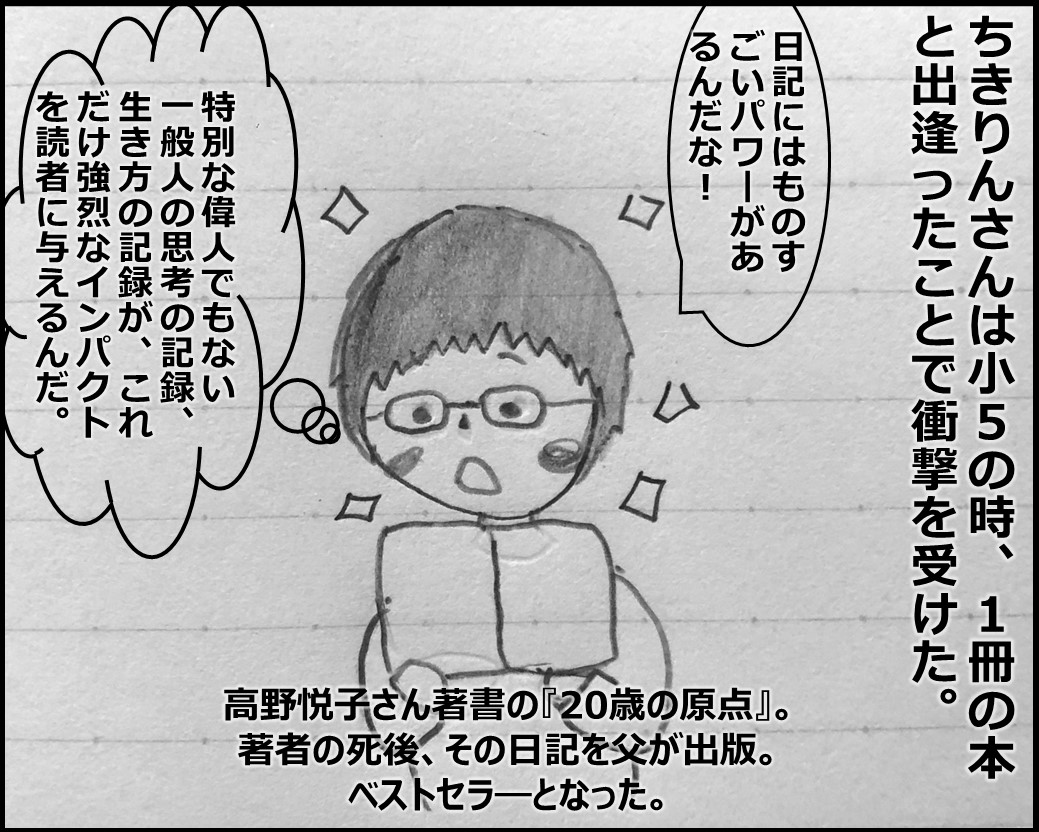 ちきりんさんは小5の時、1冊の本
と出逢ったことで衝撃を受けた。
日記にはものす
ごいパワーがあ
るんだな！
特別な偉人でもない
一般人の思考の記録、
生き方の記録が、これ
だけ強烈なインパクト
を読者に与えるんだ。
高野悦子さん著書の『20歳の原点』。
著者の死後、その日記を父が出版。
ベストセラーとなった。